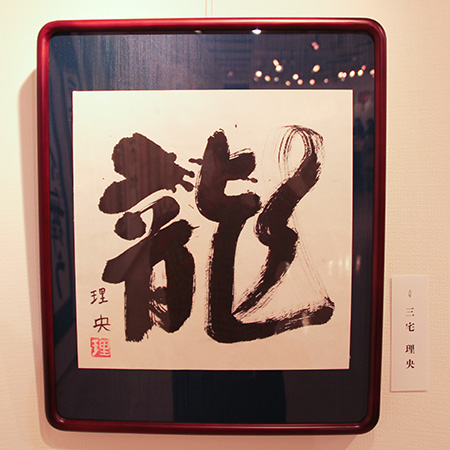 龍
理央
理
三宅 理央